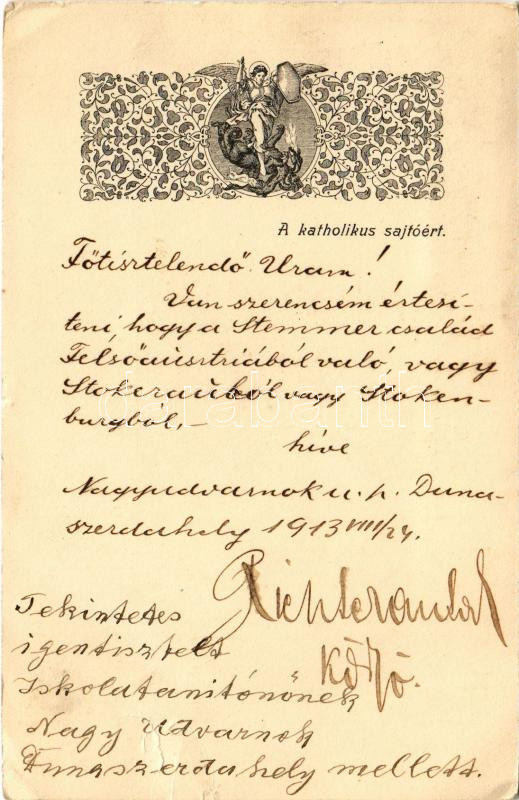 A katholikus sajtóért.
Főtisztelendő Uram!
Van szerencsém értesí-
teni, hogy a Stemmer család
Felsőausztriából való, vagy
Stokerauból vagy Stoken-
burgból, –
híve
Nagyudvarnok u. p. Duna-
szerdahely 1913 VIII/24.
Richter Antal
Tekintetes
igentisztelt
Iskolatanitónőnek
Nagy Udvarnok
Dunaszerdahely mellett.
darabanth